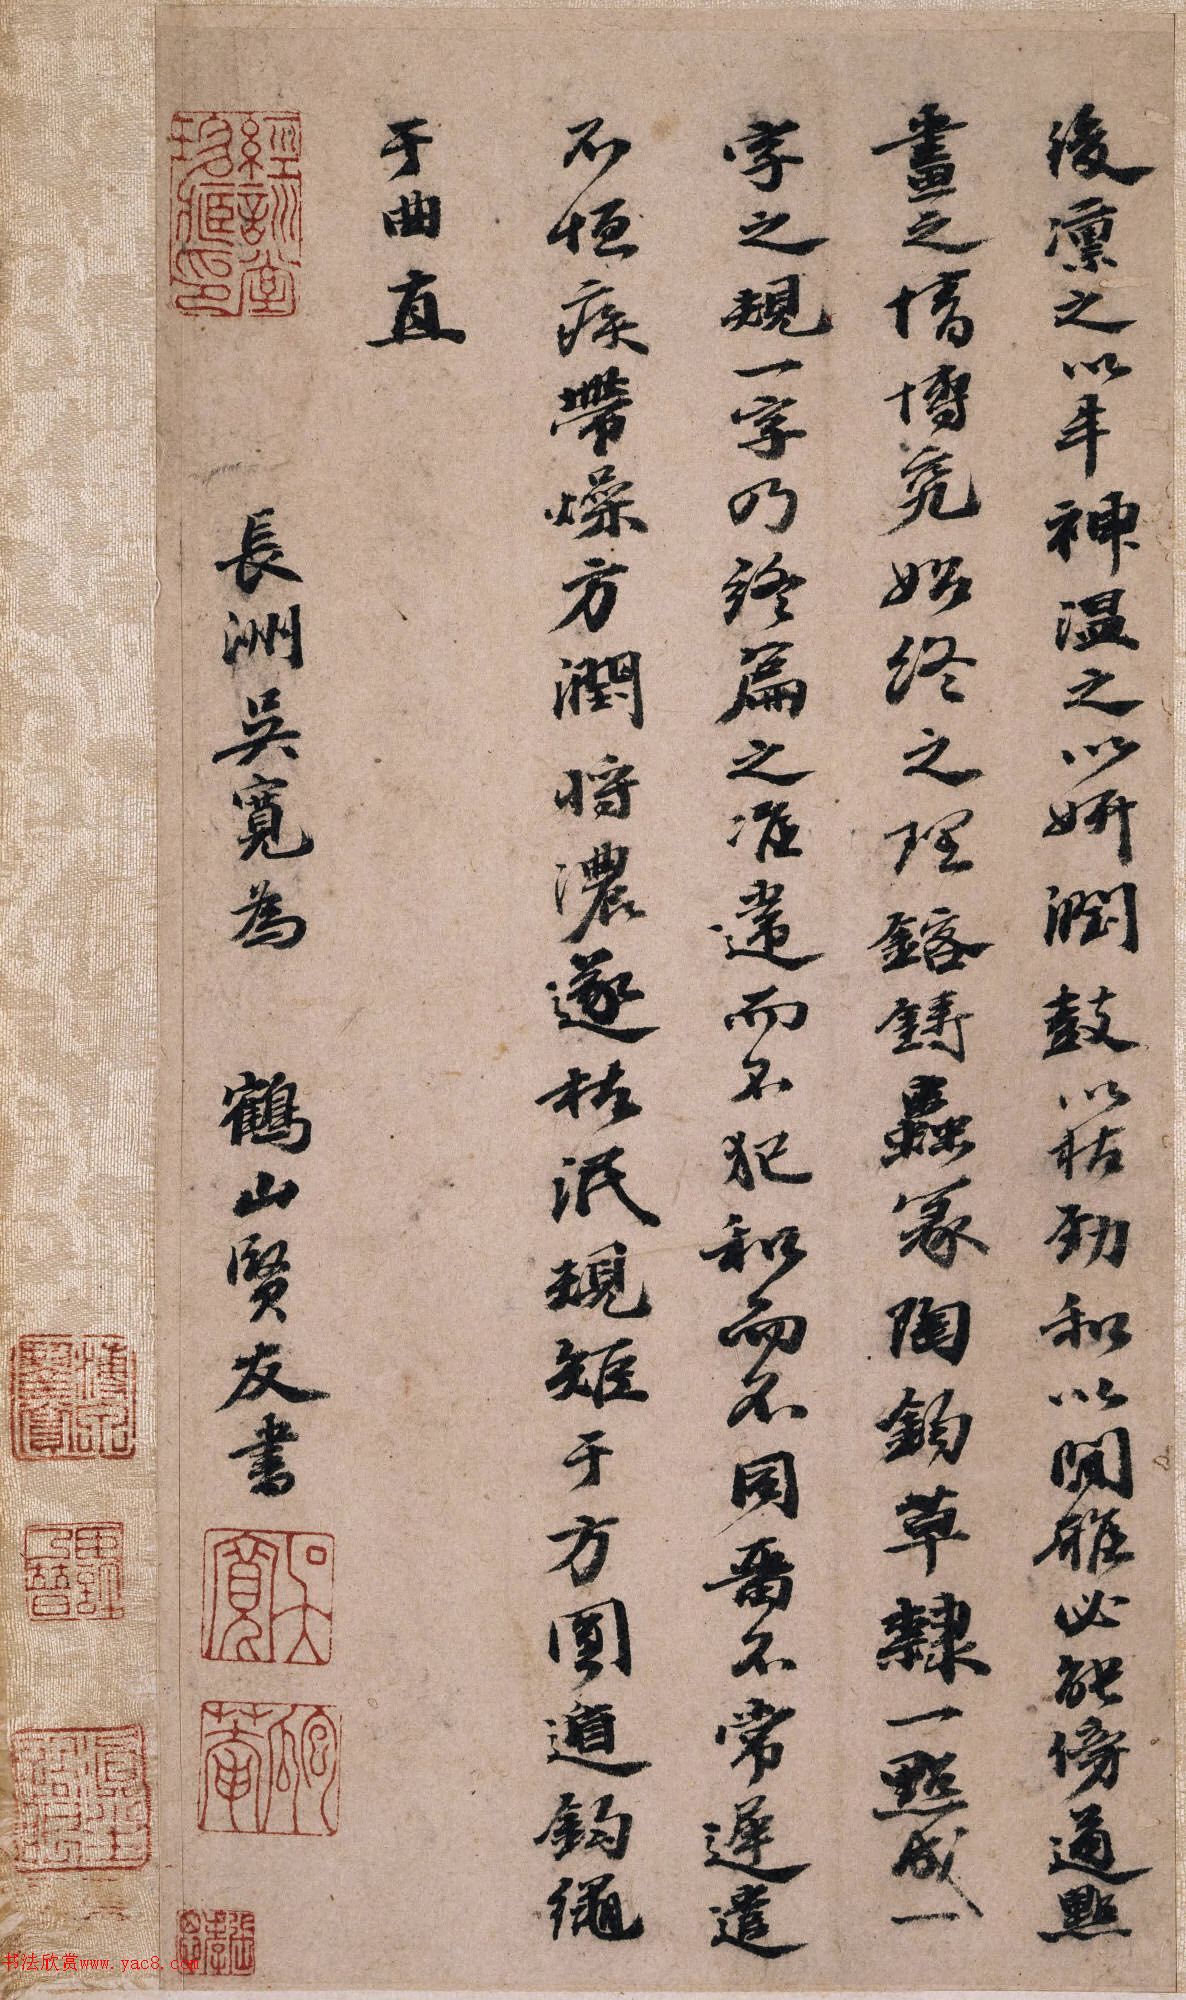 後凜之以年神溫之以妍潤鼓以枯勁和以閒雅必能傍通點
畫之情博究始終之理鎔鑄蟲篆陶鈞草隸一點成一
字之規一字乃終篇之准違而不犯和而不同畱不常遲遣
不恒疾帶燥方潤將濃遂枯泯規矩于方圓遁鈞繩
于曲直
長洲吳寬為 鶴山賢友書
經訓堂珍藏印
吳寬
书法欣赏www.yac8.com